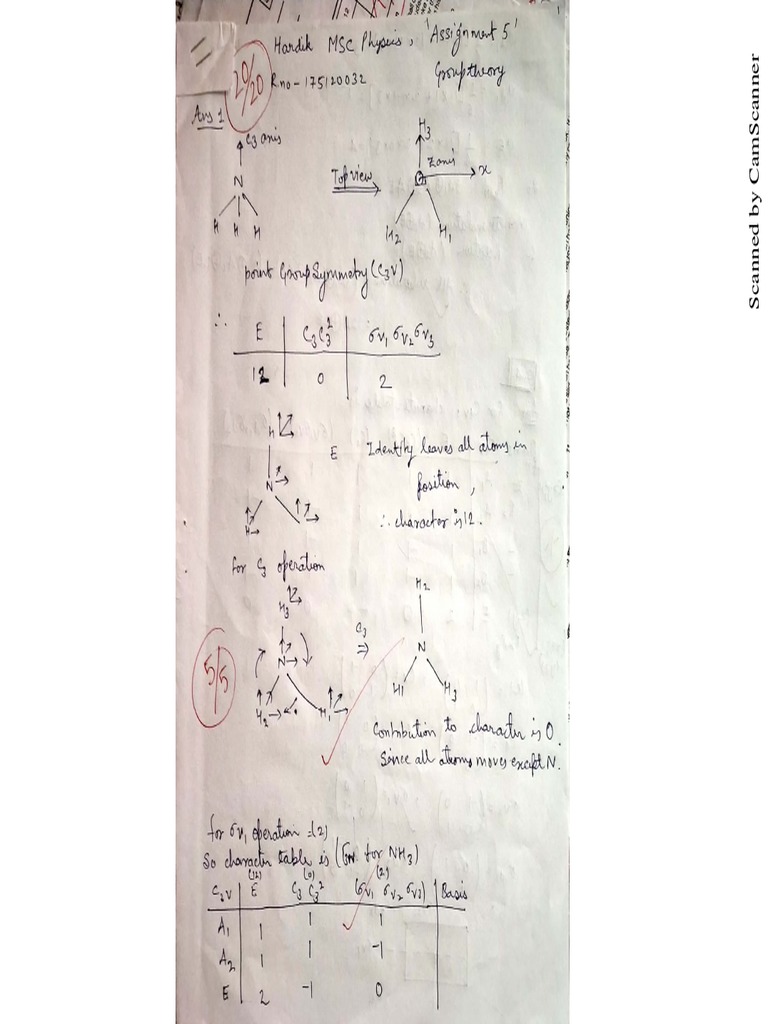 Hardik MSC Physics, 'Assignment 5'
20/20
R.no-175120032 Group theory
Ans 1
C3 axis
N
H H H
Top view
H3
Z axis
x
H2 H1
point Group Symmetry (C3V)
∴ E | C3 C3² | σv1 σv2 σv3
12 | 0 | 2
H
N
H
E Identity leaves all atoms in
position,
∴ character is 12.
for C3 operation
H3
N
H2 H1
C3
⇒
H2
N
H1 H3
5/5
Contribution to character is 0.
Since all atoms moves except N.
for σv1 operation =(2)
So character table is (for NH3)
(12) (0) (2)
C3V | E | C3 C3² | (σv1 σv2 σv3) | Basis
A1 | 1 | 1 | 1
A2 | 1 | 1 | -1
E | 2 | -1 | 0
Scanned by CamScanner